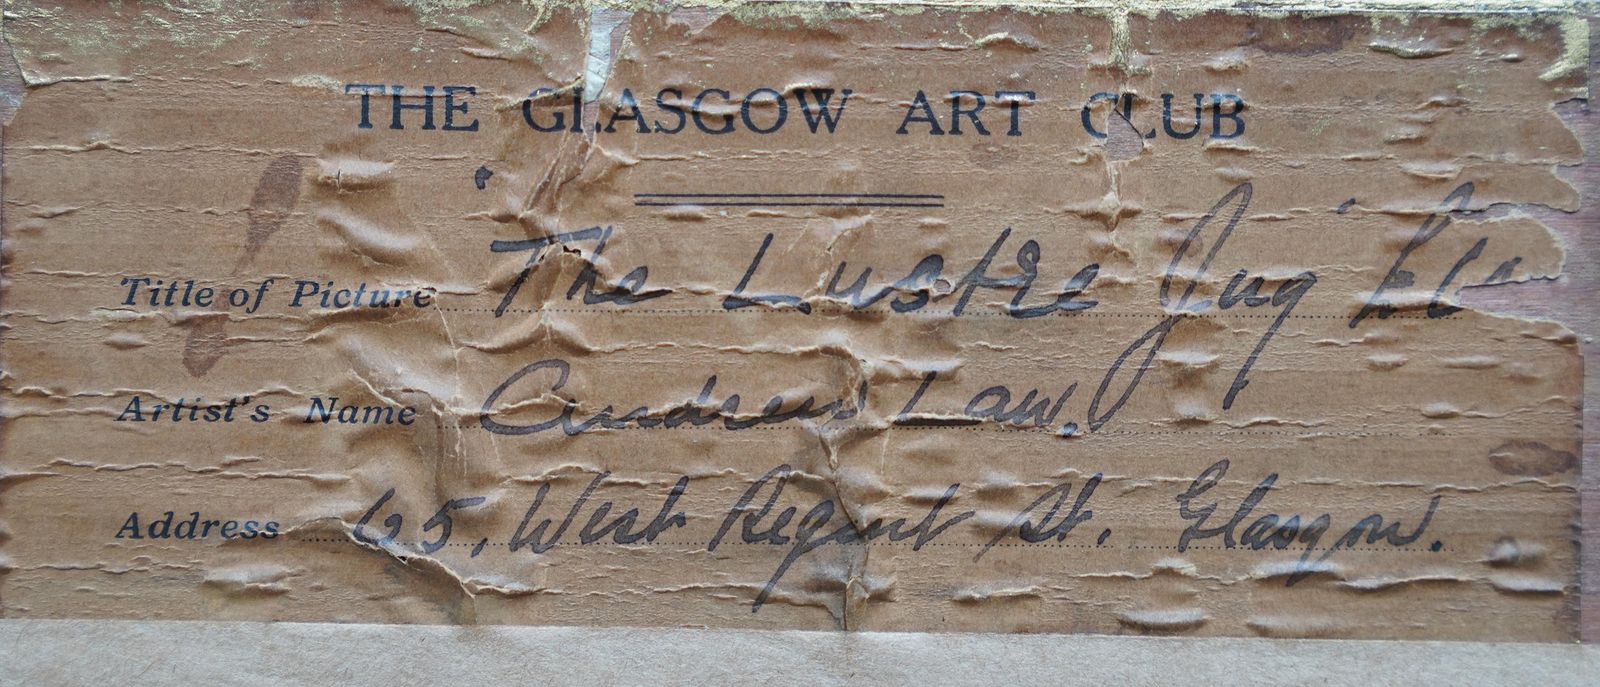 THE GLASGOW ART CLUB
Title of Picture The Lustre Jug
Artist's Name Andrew Law.
Address 65, West Regent St. Glasgow.